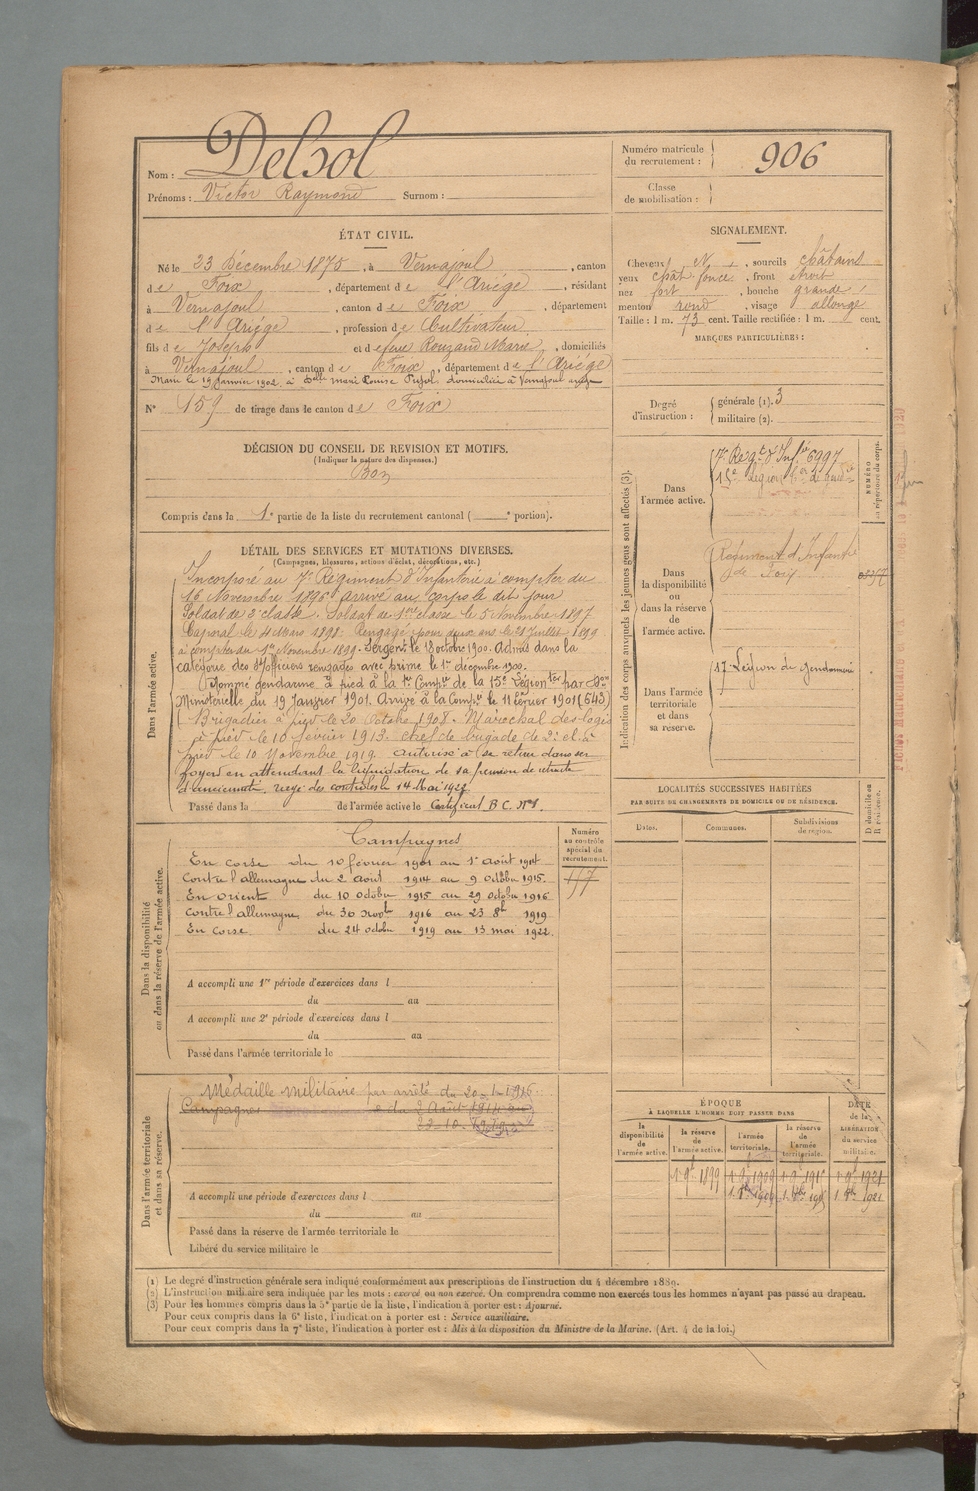 Nom : Delsol
Prénoms : Victor Raymond Surnom :
Numéro matricule
du recrutement : 906
Classe
de mobilisation :
ÉTAT CIVIL.
Né le 23 Décembre 1875, à Vernajoul, canton
de Foix, département de l'Ariège, résidant
à Vernajoul, canton de Foix, département
de l'Ariège, profession de Cultivateur
fils de Joseph et de feue Rouzaud Marie, domiciliés
à Vernajoul, canton de Foix, département de l'Ariège
Marié le 19 Janvier 1902 à Delle Marie Louise Pujol, domiciliée à Vernajoul
N° 159 de tirage dans le canton de Foix
SIGNALEMENT.
Cheveux N, sourcils châtains
yeux chât. foncé, front étroit
nez fort, bouche grande
menton rond, visage allongé
Taille : 1 m. 73 cent. Taille rectifiée : 1 m. cent.
MARQUES PARTICULIÈRES :
Degré
d'instruction :
générale (1). 3
militaire (2).
DÉCISION DU CONSEIL DE REVISION ET MOTIFS.
(Indiquer la nature des dispenses.)
Bon
Compris dans la 1e partie de la liste du recrutement cantonal ( e portion).
DÉTAIL DES SERVICES ET MUTATIONS DIVERSES.
(Campagnes, blessures, actions d'éclat, décorations, etc.)
Dans l'armée active.
Incorporé au 7e Régiment d'Infanterie à compter du
16 Novembre 1896 arrivé au corps le dit jour
Soldat de 2e classe. Soldat de 1ère classe le 5 Novembre 1897
Caporal le 4 Mars 1898. Rengagé pour deux ans le 28 Juillet 1899
à compter du 1er Novembre 1899. Sergent le 18 octobre 1900. Admis dans la
catégorie des S/officiers rengagés avec prime le 1er decembre 1900.
Nommé gendarme à pied à la 1re Compie de la 15e Légion ter par Don
Ministerielle du 19 Janvier 1901. Arrivé à la Compie le 11 Février 1901 (643)
Brigadier à pied le 20 Octobre 1908. Maréchal des logis
à pied le 10 février 1913. chef de brigade de 2e cl. à
pied le 10 Novembre 1919. autorisé à se retirer dans ses
foyers en attendant la liquidation de sa pension de retraite
d'ancienneté, rayé des contrôles le 14 Mai 1922.
Passé dans la de l'armée active le Certificat B.C. N°1.
Indication des corps auxquels les jeunes gens sont affectés (3).
Dans
l'armée active.
7e Régt d'Infie 6997
15e Légion
NUMÉRO
au répertoire du corps.
Dans
la disponibilité
ou
dans la réserve
de
l'armée active.
Régiment d'Infanterie
de Foix
Dans l'armée
territoriale
et dans
sa réserve.
17e Légion de gendarmerie
LOCALITÉS SUCCESSIVES HABITÉES
PAR SUITE DE CHANGEMENTS DE DOMICILE OU DE RÉSIDENCE.
Dates. Communes. Subdivisions
de région.
D domicile ou
R résidence.
Dans la disponibilité
ou dans la réserve de l'armée active.
Numéro
au contrôle
spécial du
recrutement.
177
Campagnes
En corse du 10 février 1901 au 1er août 1914
Contre l'allemagne du 2 août 1914 au 9 octobre 1915.
En Orient du 10 octobre 1915 au 29 octobre 1916
Contre l'allemagne du 30 1916 au 23 8bre 1919
En Corse du 24 octobre 1919 au 13 mai 1922.
A accompli une 1re période d'exercices dans l
du au
A accompli une 2e période d'exercices dans l
du au
Passé dans l'armée territoriale le
Dans l'armée territoriale
et dans sa réserve.
Médaille militaire par arrêté du 20-1-1916
Campagnes du 2 Août 1914 au
23-10-1919
A accompli une période d'exercices dans l
du au
Passé dans la réserve de l'armée territoriale le
Libéré du service militaire le
ÉPOQUE
À LAQUELLE L'HOMME DOIT PASSER DANS
la
disponibilité
de
l'armée active.
la réserve
de
l'armée active.
l'armée
territoriale.
la réserve
de
l'armée
territoriale.
DATE
de la
LIBÉRATION
du service
militaire.
1. 9e 1899 1. 9e 1909 1. 9e 1915 1. 9e 1921
1. 1909 1. 1915 1. 1921
(1) Le degré d'instruction générale sera indiqué conformément aux prescriptions de l'instruction du 4 décembre 1889.
(2) L'instruction militaire sera indiquée par les mots : exercé ou non exercé. On comprendra comme non exercés tous les hommes n'ayant pas passé au drapeau.
(3) Pour les hommes compris dans la 5e partie de la liste, l'indication à porter est : Ajourné.
Pour ceux compris dans la 6e liste, l'indication à porter est : Service auxiliaire.
Pour ceux compris dans la 7e liste, l'indication à porter est : Mis à la disposition du Ministre de la Marine. (Art. 4 de la loi.)